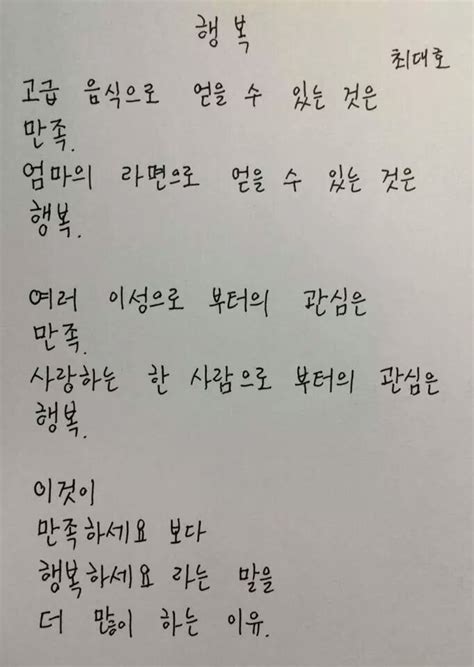 행복
최대호
고급 음식으로 얻을 수 있는 것은
만족.
엄마의 라면으로 얻을 수 있는 것은
행복.
여러 이성으로 부터의 관심은
만족.
사랑하는 한 사람으로 부터의 관심은
행복.
이것이
만족하세요 보다
행복하세요 라는 말을
더 많이 하는 이유.